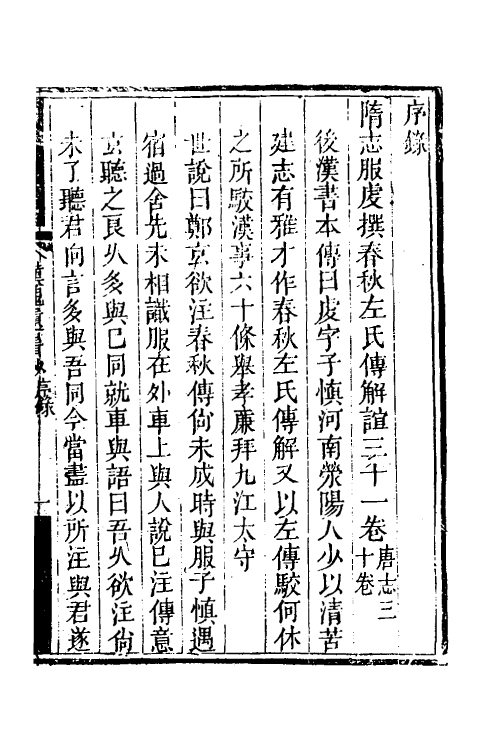 序錄
隋志服虔撰春秋左氏傳解誼三十一卷唐志三十卷
後漢書本傳曰虔字子慎河南滎陽人少以清苦
建志有雅才作春秋左氏傳解又以左傳駮何休
之所駮漢事六十條舉孝廉拜九江太守
世說曰鄭玄欲注春秋傳尙未成時與服子慎遇
宿過舍先未相識服在外車上與人說已注傳意
玄聽之良乆多與已同就車與語曰吾乆欲注尙
未了聽君向言多與吾同今當盡以所注與君遂
序錄
一